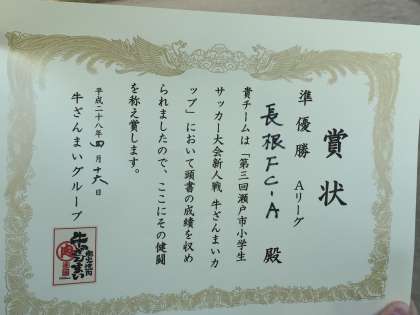 賞状
準優勝 Aリーグ
長根FC-A 殿
貴チームは「第三回瀬戸市小学生
サッカー大会新人戦 牛ざんまいカ
ップ」において頭書の成績を収め
られましたので、ここにその健闘
を称え賞します。
平成二十八年 四月 十六日
牛ざんまいグループ
牛ざんまい